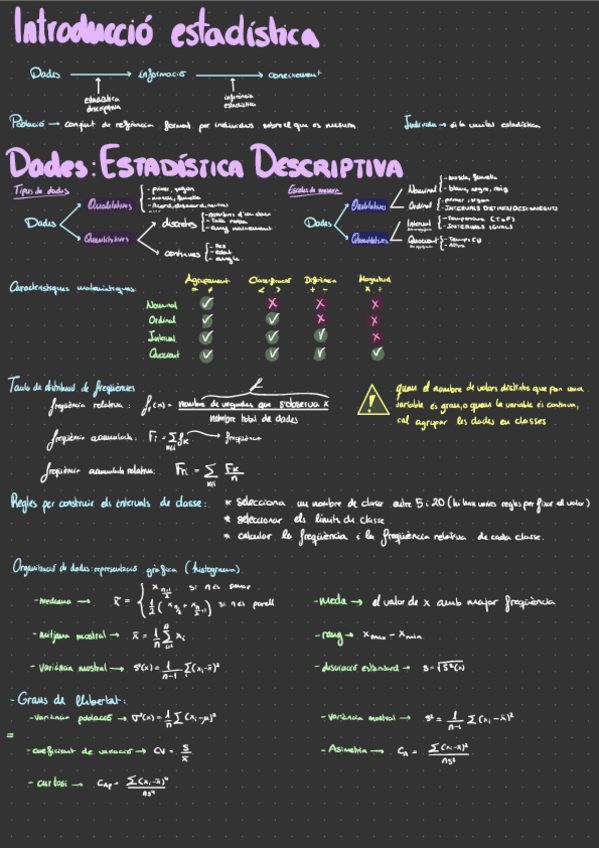 Introducció estadística
Dades → informació → coneixement
↑ estadística descriptiva
↑ inferència estadística
Població → conjunt de referència format per individus sobre el que es mesura. Individu → és la unitat estadística
Dades: ESTADÍSTICA DESCRIPTIVA
Tipus de dades
Dades
Qualitatives
- primer, segon
- mascle, femella
Quantitatives
discretes
contínues
- Pes
- edat
Escales de mesura
Dades
Qualitatives
Nominal
- mascle, femella
- blanc, negre, roig
Ordinal
- primer, segon
Quantitatives
Interval
- Temperatura (°C o °F)
- INTERVALS IGUALS
Quocient
Característiques matemàtiques:
Agrupament Classificació Diferència Magnitud
= ≠ < > + - × ÷
Nominal ✓ × × ×
Ordinal ✓ ✓ × ×
Interval ✓ ✓ ✓ ×
Quocient ✓ ✓ ✓ ✓
Taula de distribució de freqüències
freqüència relativa: fr(x) = nombre de vegades que s'observa x / nombre total de dades
freqüència acumulada: Fi = Σ k≤i fk → freqüència
freqüència acumulada relativa: Fri = Σ k≤i Fk/n
quan el nombre de valors distints que pren una
variable és gran, o quan la variable és contínua,
cal agrupar les dades en classes
Regles per construir els intervals de classe: * selecciona un nombre de classe entre 5 i 20 (hi han varies regles per fixar el valor)
* seleccionar els límits de classe
* calcular la freqüència i la freqüència relativa de cada classe.
Organització de dades: representació gràfica (histograma)
- mediana → x̃ = { x (n+1)/2 si n és senar
1/2 (x n/2 + x n/2+1) si n és parell
- moda → el valor de x amb major freqüència
- mitjana mostral → x̄ = 1/n Σ xi
- rang → x max - x min
- variància mostral → s²(x) = 1/(n-1) Σ(xi-x̄)²
- desviació estàndard → s = √s²(x)
- Graus de llibertat:
- variància població → σ²(x) = 1/n Σ(xi-μ)²
- variància mostral → s² = 1/(n-1) Σ(xi-x̄)²
=
- coeficient de variació → CV = s/x̄
- Asimetria → CA = Σ(xi-x̄)³/ns³
- curtosi → CAp = Σ(xi-x̄)⁴/ns⁴